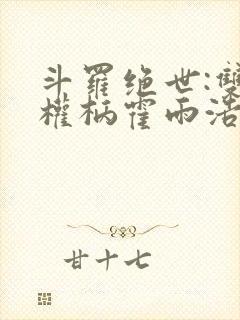 斗羅绝世:雙
權柄霍雨浩
甘十七